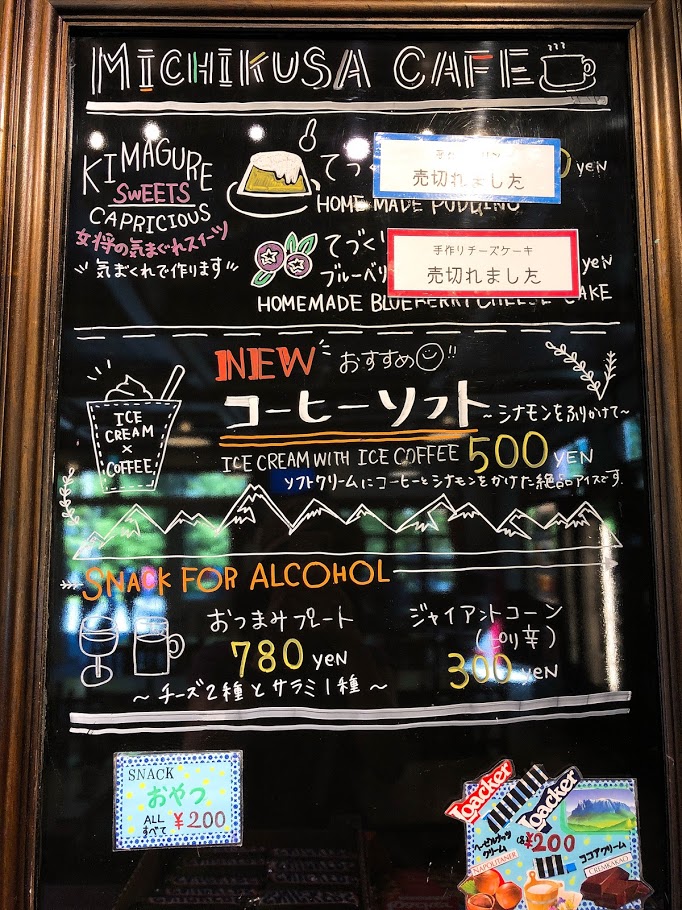 MICHIKUSA CAFE
KIMAGURE
SWEETS
CAPRICIOUS
女将の気まぐれスイーツ
気まぐれで作ります
てづ
売切れました
0 yeN
HOME MADE PUDDING
てづくり
ブルーベリ
手作りチーズケーキ
売切れました
yeN
HOMEMADE BLUEBERRY CHEESE CAKE
NEW おすすめ!!
コーヒーソフト ～シナモンをふりかけて～
ICE CREAM WITH ICE COFFEE 500 YEN
ソフトクリームにコーヒーとシナモンをかけた絶品アイスです.
ICE
CREAM
×
COFFEE
SNACK FOR ALCOHOL
おつまみプレート
780 yeN
～チーズ2種とサラミ1種～
ジャイアントコーン
(ピリ辛)
300 yeN
SNACK
おやつ
ALL
すべて ¥200
Loacker
Loacker
ヘーゼルナッツ
クリーム
各¥200
ココアクリーム
NAPOLITANER
CREMKAKAO